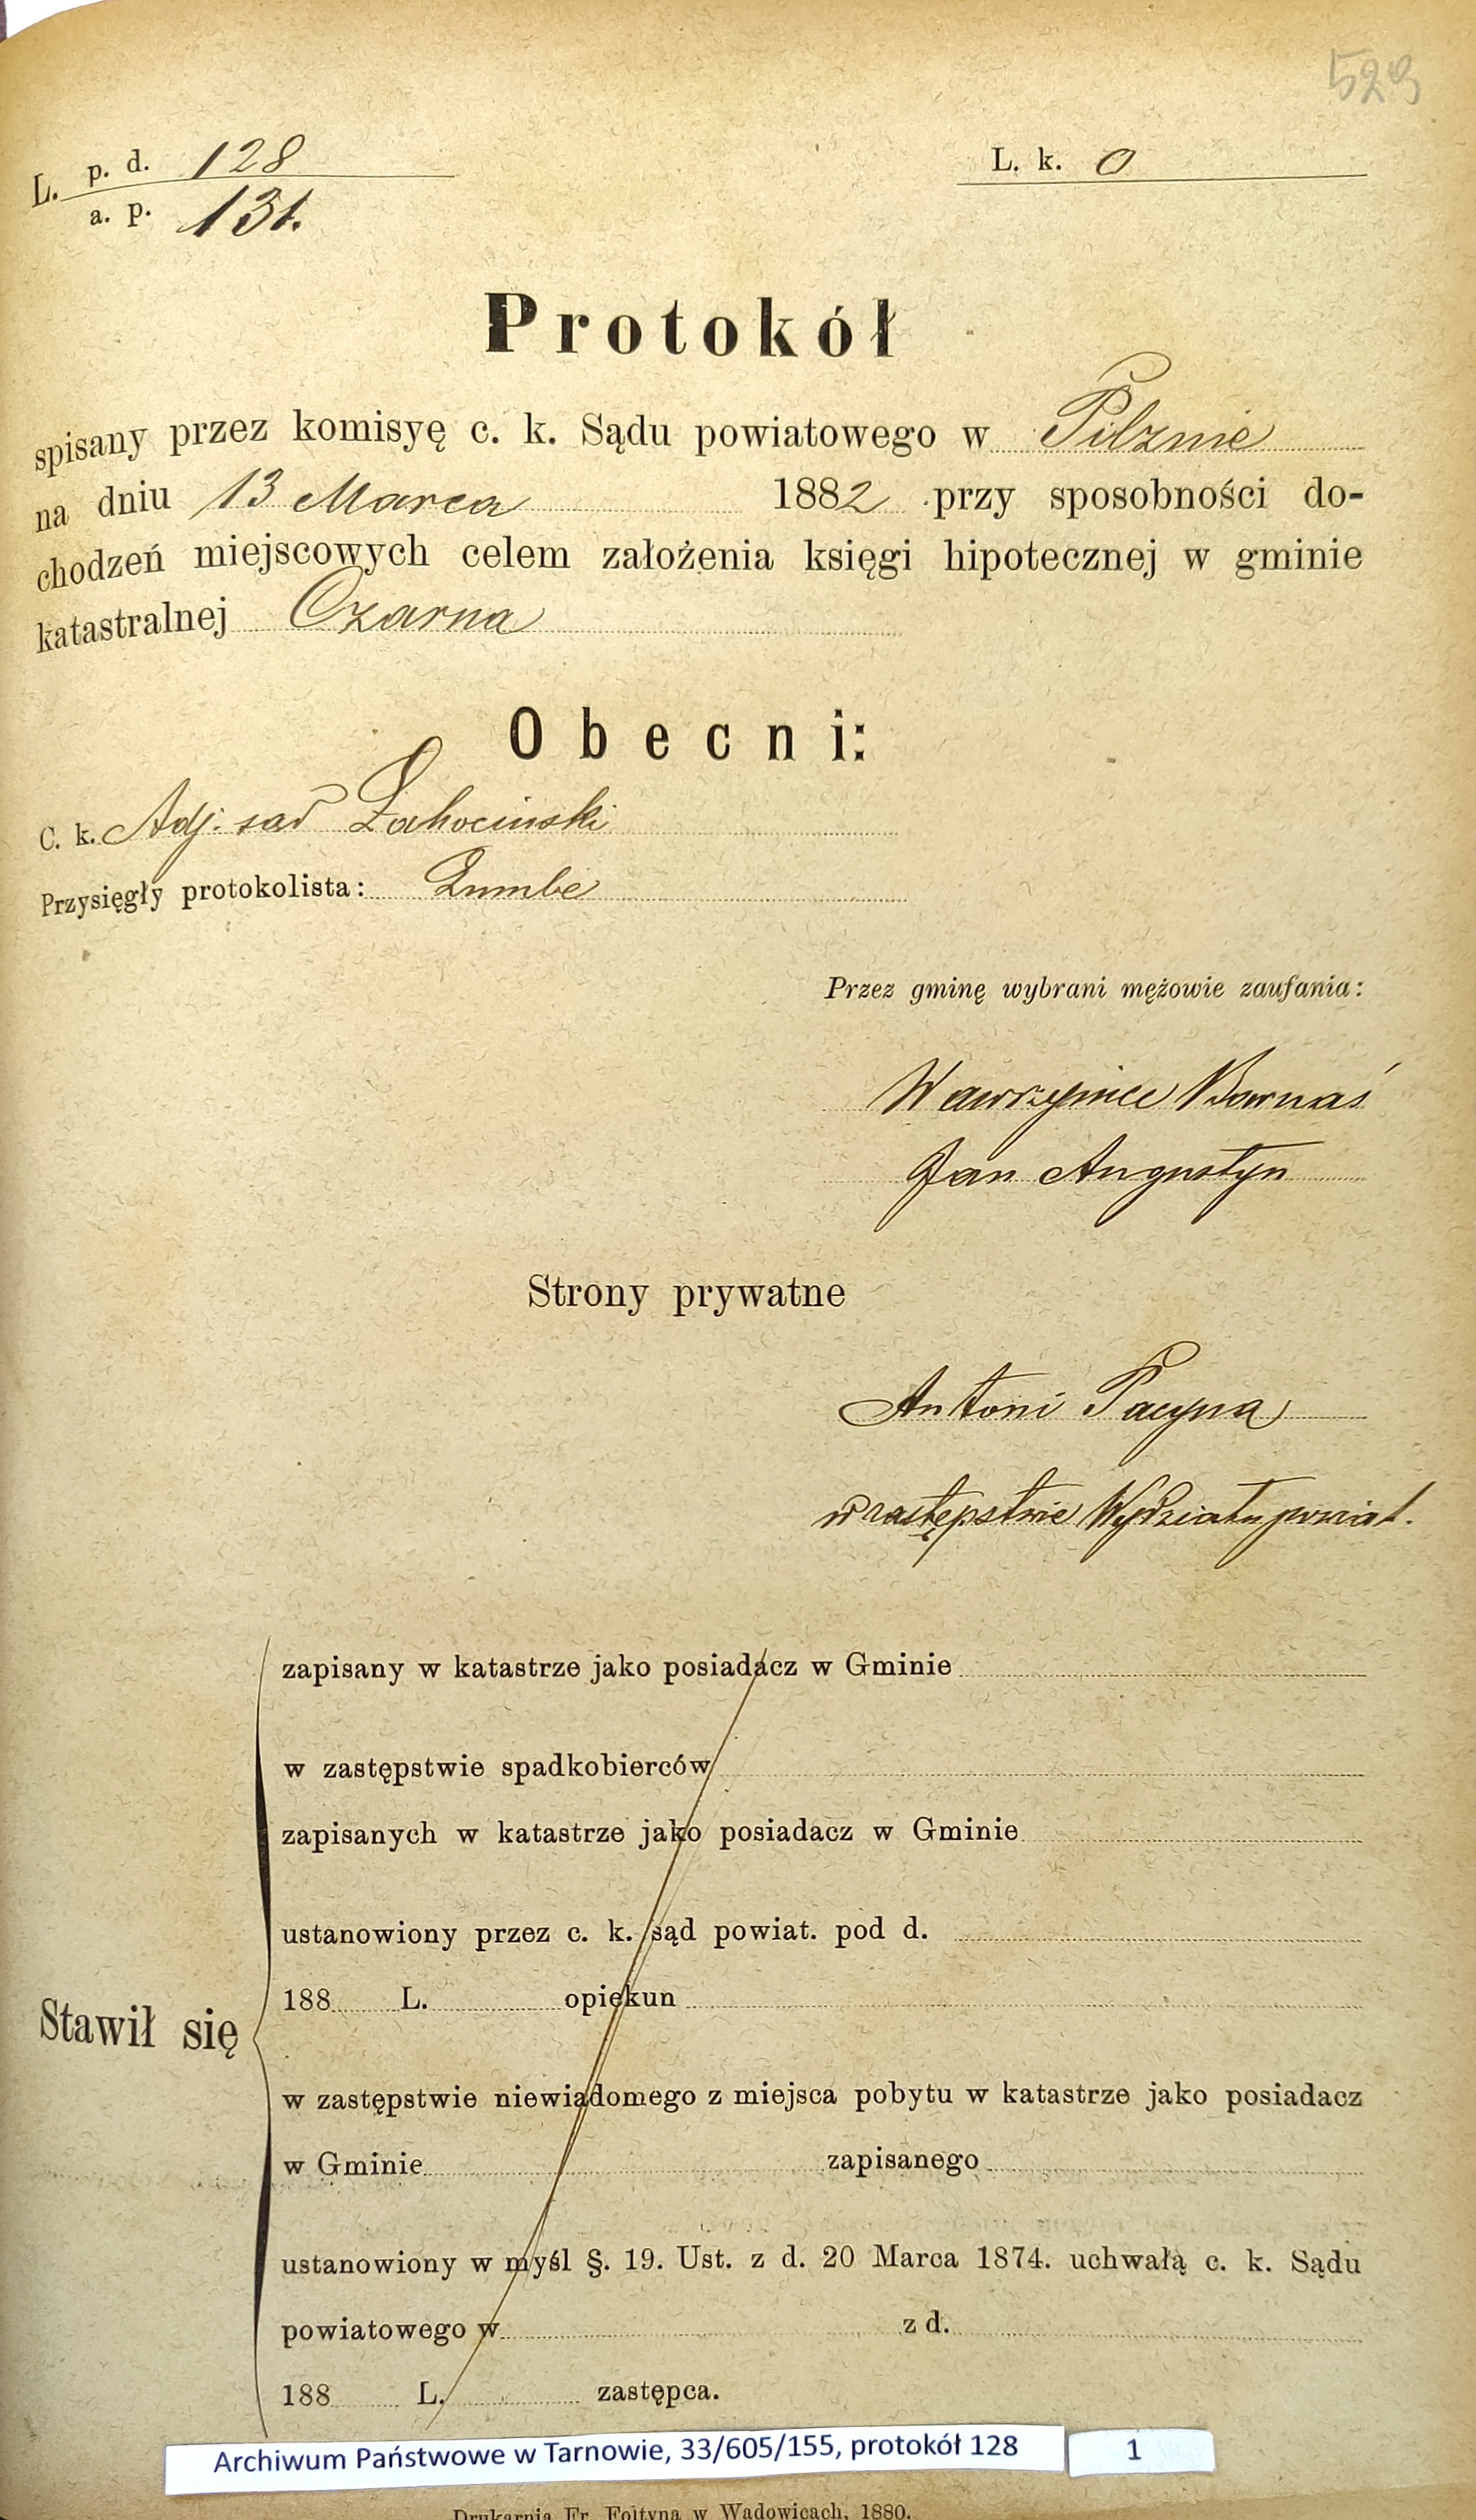 529
L. p. d. 128
a. p. 131.
L. k. 0
Protokół
spisany przez komisyę c. k. Sądu powiatowego w Pilznie
na dniu 13 Marca 1882 przy sposobności do-
chodzeń miejscowych celem założenia księgi hipotecznej w gminie
katastralnej Czarna
Obecni:
C. k. Adj. sąd Łahociński
Przysięgły protokolista: Zumbe
Przez gminę wybrani mężowie zaufania:
Wawrzyniec Barnaś
Jan Augustyn
Strony prywatne
Antoni Pacyna
w zastępstwie Wydziału powiat.
zapisany w katastrze jako posiadacz w Gminie
w zastępstwie spadkobierców
zapisanych w katastrze jako posiadacz w Gminie
ustanowiony przez c. k. sąd powiat. pod d.
188 L. opiekun
Stawił się
w zastępstwie niewiadomego z miejsca pobytu w katastrze jako posiadacz
w Gminie zapisanego
ustanowiony w myśl §. 19. Ust. z d. 20 Marca 1874. uchwałą c. k. Sądu
powiatowego w z d.
188 L. zastępca.
Archiwum Państwowe w Tarnowie, 33/605/155, protokół 128 1
Drukarnia Fr. Foltyna w Wadowicach, 1880.